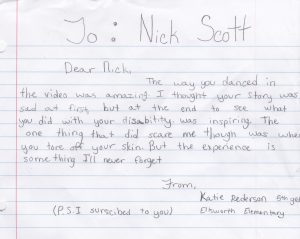 To: Nick Scott
Dear Nick,
The way you danced in
the video was amazing I thought your story was
sad at first, but at the end to see what
you did with your disability was inspiring. The
one thing that did scare me though was when
you tore off your skin. But the experience is
something I'll never forget
From,
Katie Rederson 5th
(P.S.I surscribed to you) Elkworth Elementary